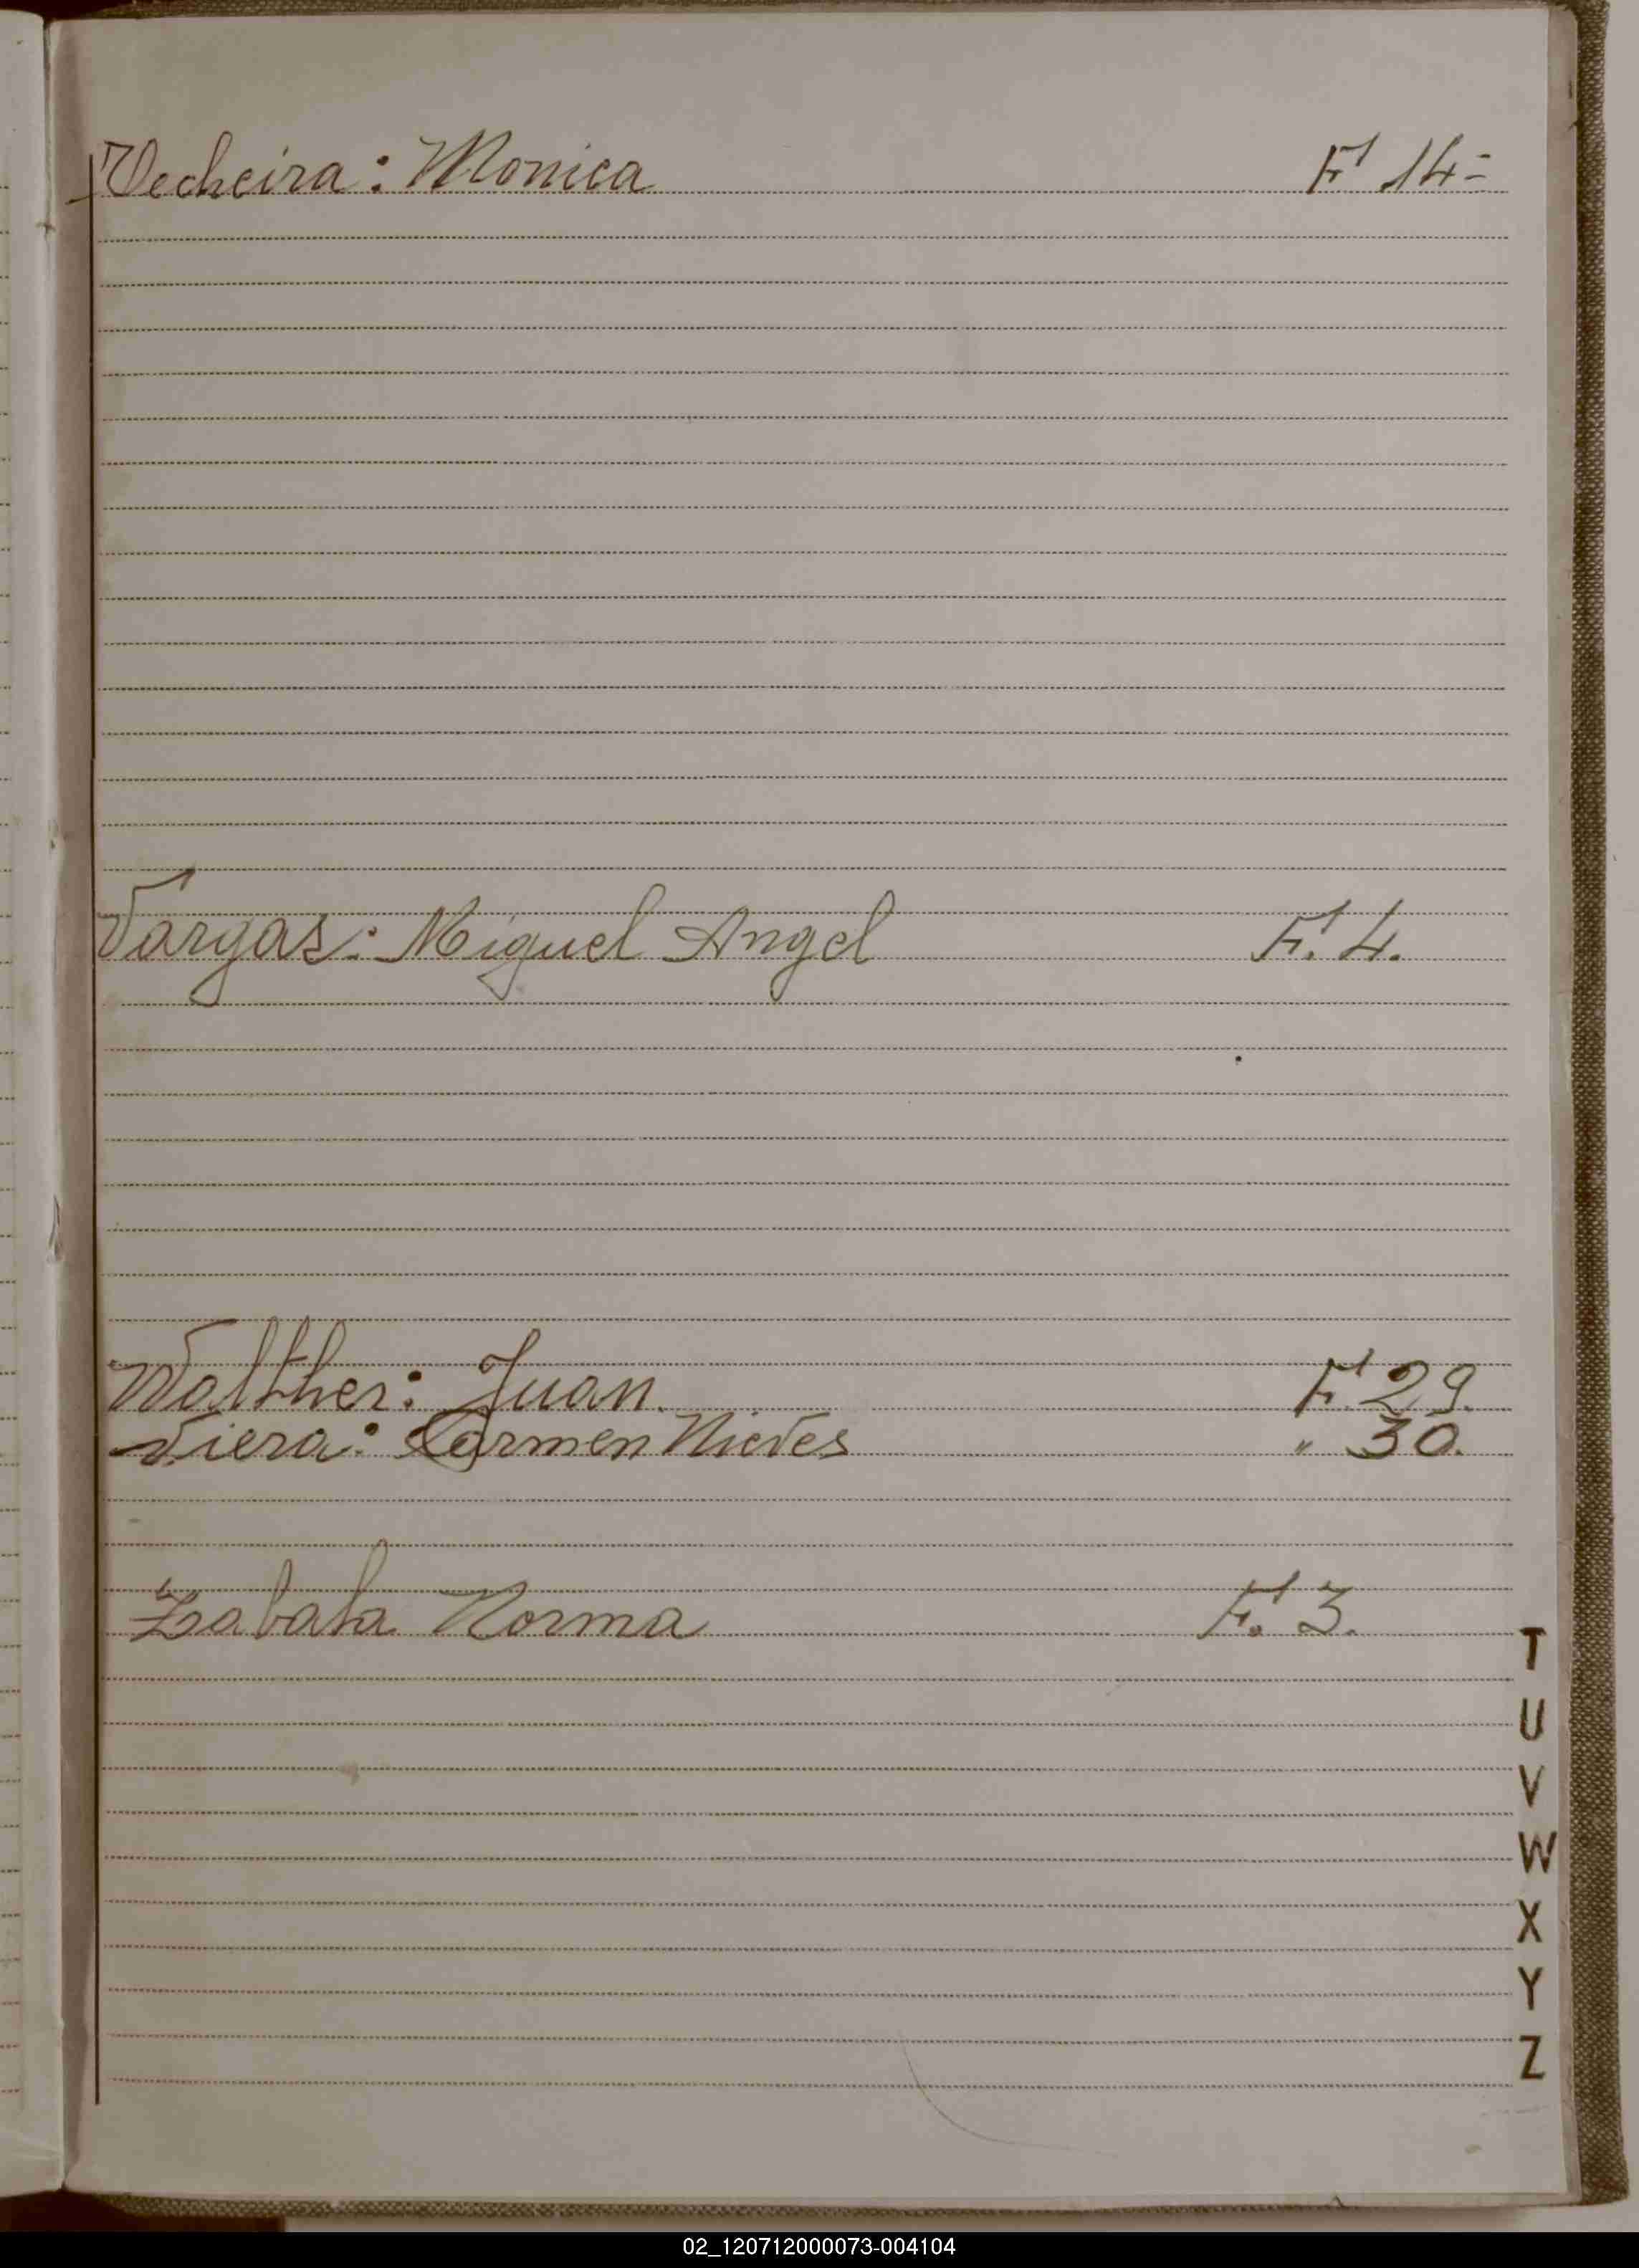 Vecheira: Monica F 14=
Vargas: Miguel Angel F. 4.
Walther: Juan. F. 29.
Viera: Carmen Nieves " 30.
Zabala Norma F. 3.
T
U
V
W
X
Y
Z
02_120712000073-004104